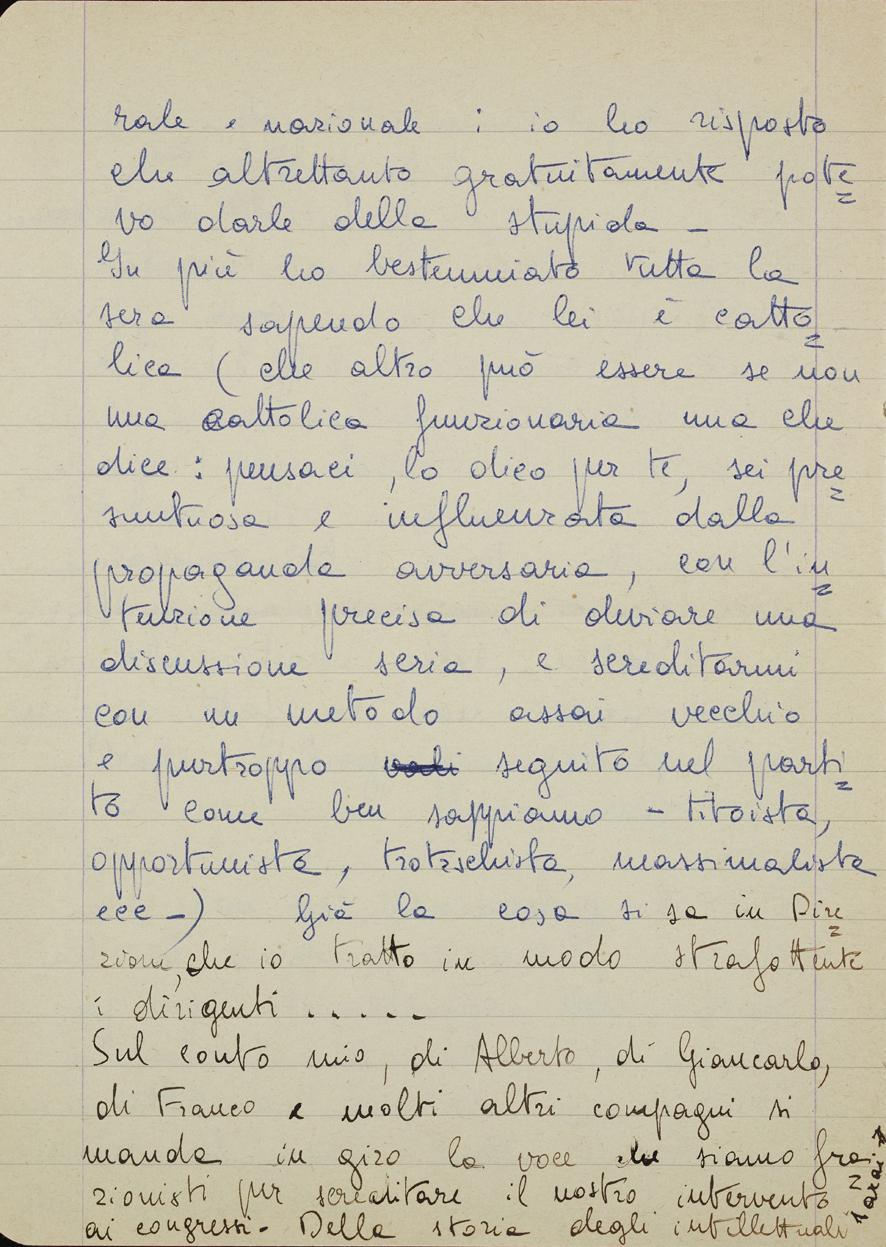 rale e nazionale : io ho risposto
che altrettanto gratuitamente pote=
vo darle della stupida -
In più ho bestemmiato tutta la
sera sapendo che lei è catto=
lica ( che altro può essere se non
una cattolica funzionaria una che
dice : pensaci , lo dico per te, sei pre=
suntuosa e influenzata dalla
propaganda avversaria, con l'in=
tenzione precisa di deviare una
discussione seria , e screditarmi
con un metodo assai vecchio
e purtroppo seguito nel parti=
to come ben sappiamo - titoista,
opportunista, trotzschista, massimalista
ecc -) Già la cosa si sa in Dire=
zione, che io tratto in modo strafottente
i dirigenti .....
Sul conto mio, di Alberto, di Giancarlo,
di Franco e molti altri compagni si
manda in giro la voce che siamo fra=
zionisti per screditare il nostro intervento
ai congressi. Della storia degli intellettuali
sarai